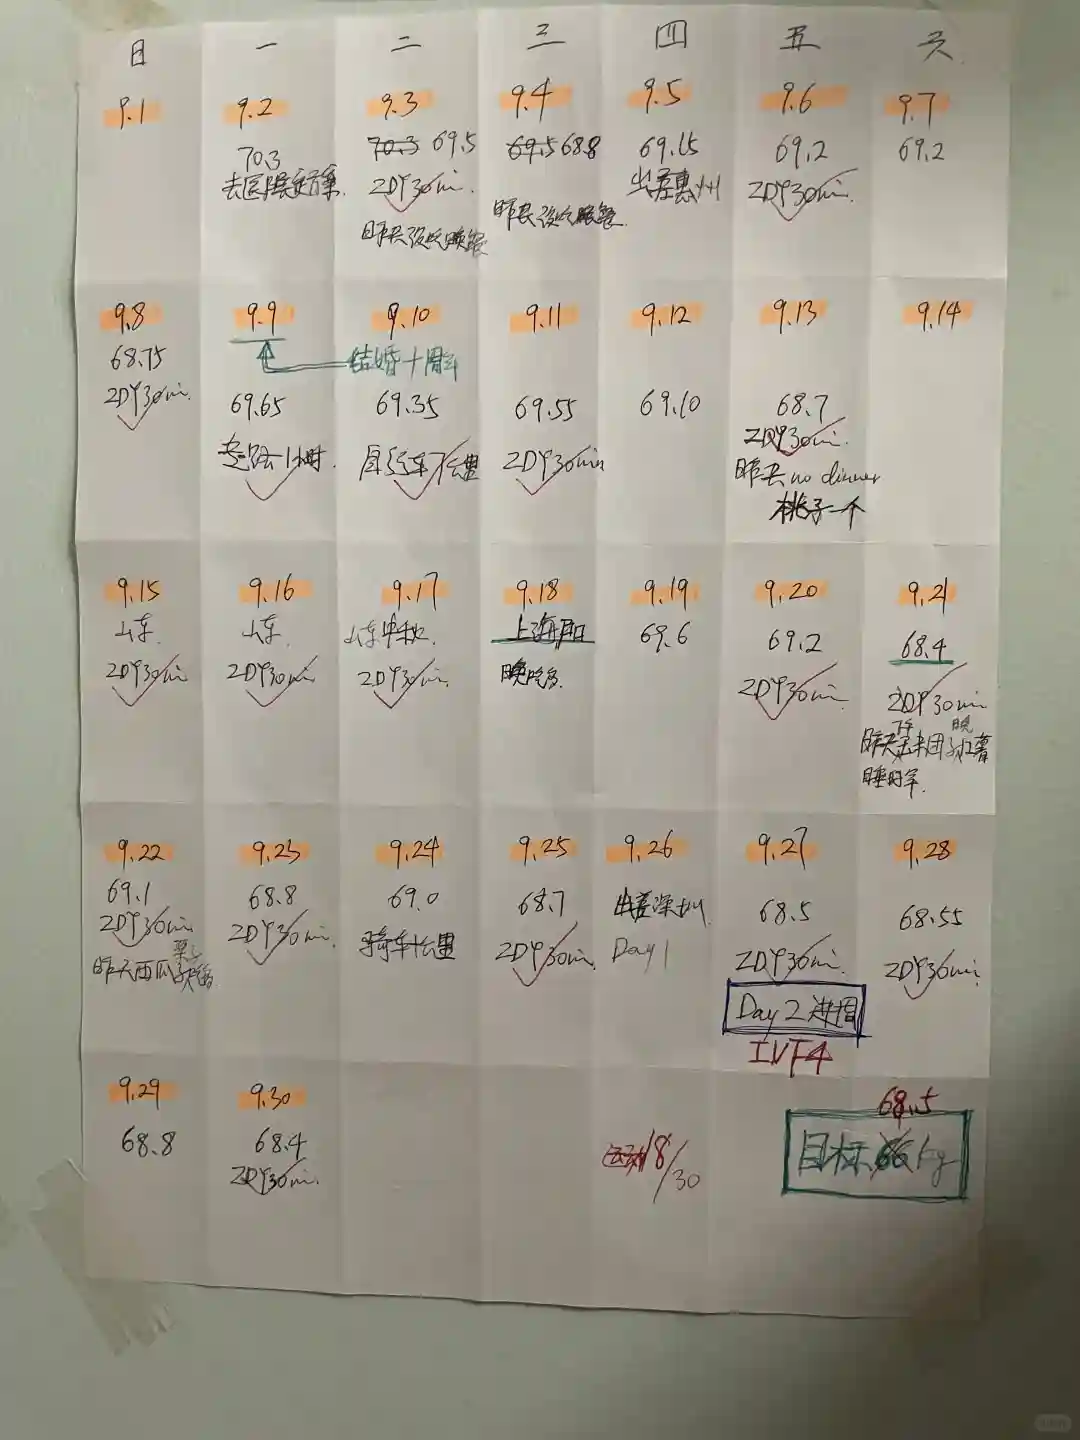 日 一 二 三 四 五 六
9.1 9.2 9.3 9.4 9.5 9.6 9.7
70.3 70.3 69.5 69.5 68.8 69.15 69.2 69.2
去医院定方案. ZDY30min. 出差惠州 ZDY30min.
昨天没吃晚餐 昨天没吃晚餐.
9.8 9.9 9.10 9.11 9.12 9.13 9.14
结婚十周年
68.75 69.65 69.35 69.55 69.10 68.7
ZDY30min. 走路1小时. 自行车7公里 ZDY30min ZDY30min.
昨天no dinner
桃子一个
9.15 9.16 9.17 9.18 9.19 9.20 9.21
山东. 山东. 山东中秋. 上海 69.6 69.2 68.4
ZDY30min ZDY30min. ZDY30min. 晚吃多. ZDY30min. ZDY30min
下午 晚
昨天 米团子红薯
睡时早.
9.22 9.23 9.24 9.25 9.26 9.27 9.28
69.1 68.8 69.0 68.7 出差深圳. 68.5 68.55
ZDY30min ZDY30min. 骑车十公里 ZDY30min. Day1 ZDY30min. ZDY30min.
昨天西瓜
Day2进周
IVF4
9.29 9.30
68.8 68.4
ZDY30min.
运动18/30
68.5
目标66kg